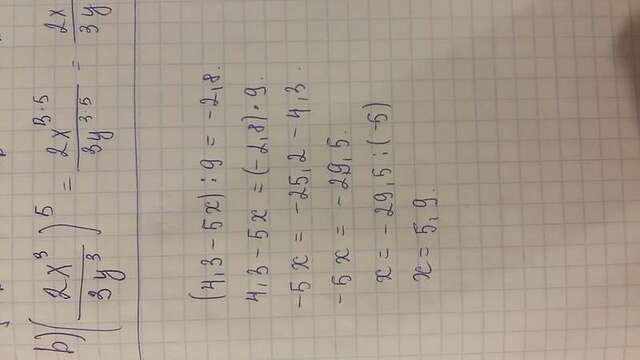 b) (2x³/3y³)⁵ = 2x³·⁵/3y³·⁵ = 2x/3y
(4,3 - 5x) : 9 = -2,8.
4,3 - 5x = (-2,8) · 9.
-5x = -25,2 - 4,3.
-5x = -29,5.
x = -29,5 : (-5)
x = 5,9.